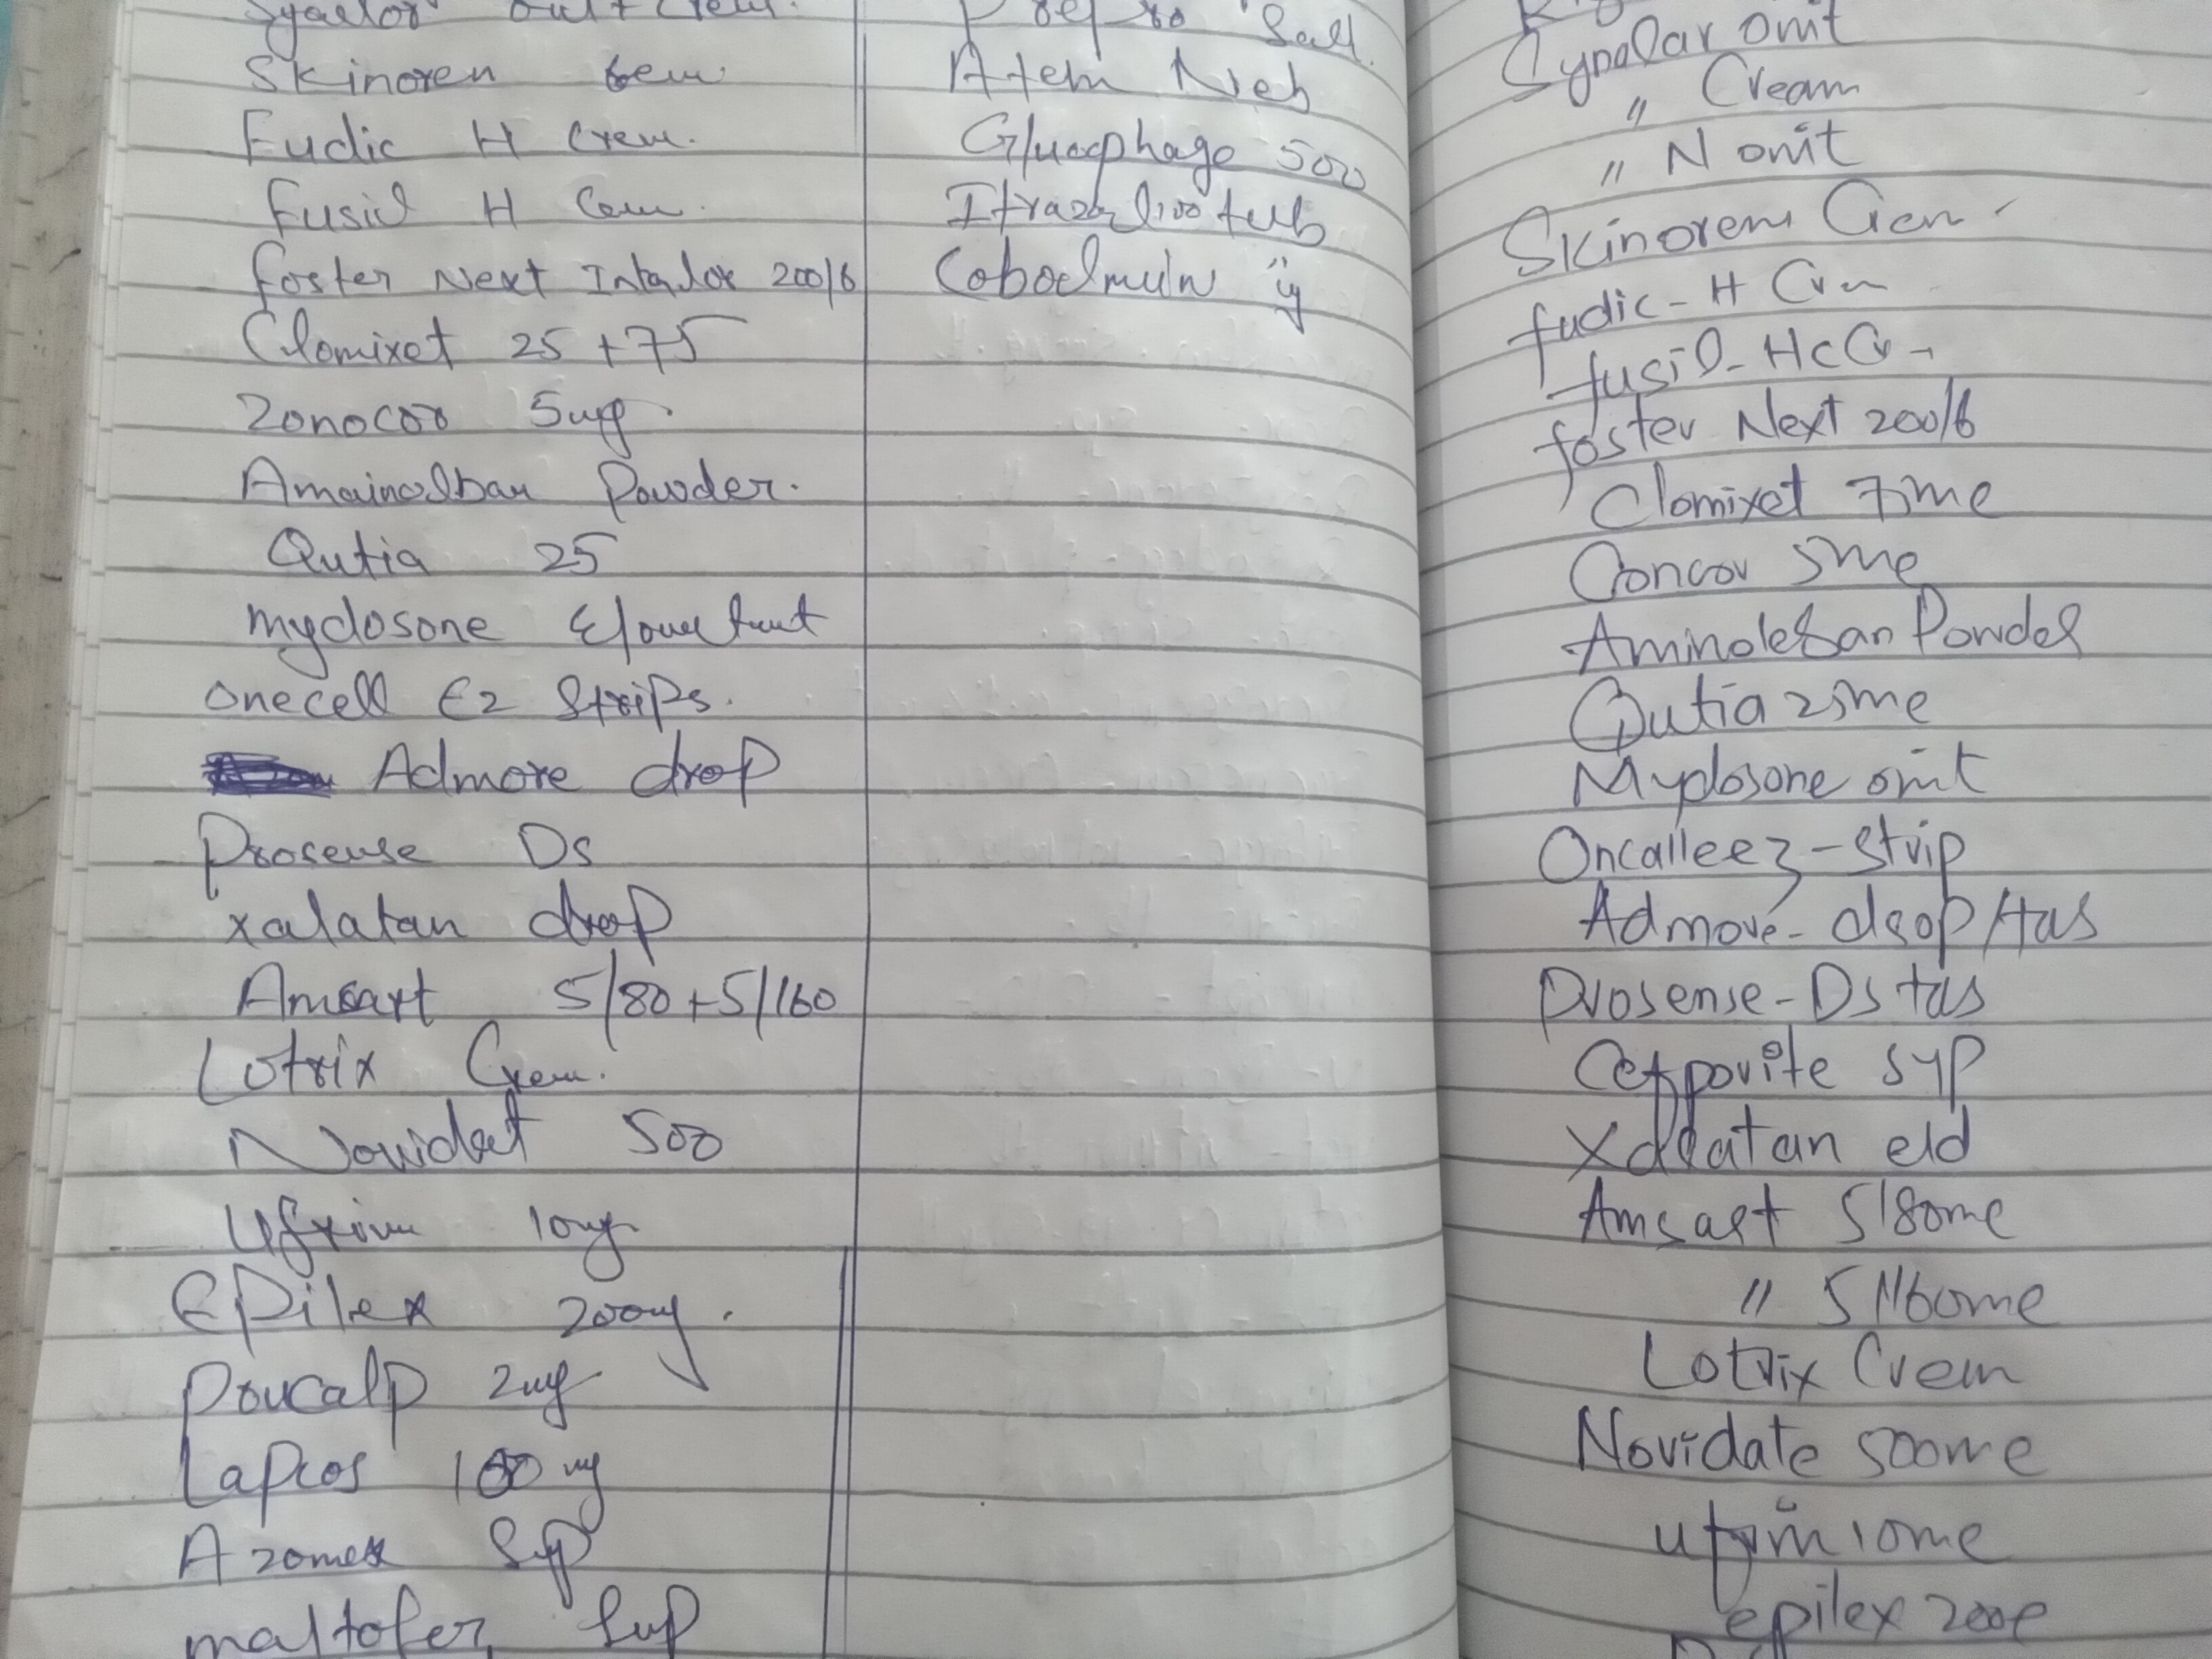 Skinoren
Fudic H Crem.
Fusid H
foster Next Inhalor 200/6
Clomixet 25 + 75
Zonocor 5mg.
Powder.
Qutia 25
myclosone
onecell Ez Strips.
Admore drop
Prosense Ds
xalatan drop
Amsart 5/80 + 5/160
Lotrix Crem.
Novidat 500
Ufrim 10mg
EPilex 200mg.
Poucalp 2mg
Lapcos 100 mg
Azomex Syp
maltofer Syp
Sall.
Atem Neb
Glucophage 500
tub
inj
Synalar onit
" Cream
" N onit
Skinoren
fudic - H
fusid - Hc
foster Next 200/6
Clomixet
Concor 5me
Aminoleban Powder
Qutia 25me
Myclosone onit
strip
Admore - drop/tab
Prosense - Ds tab
syp
Xalatan eld
Amsart 5/80me
" 5/160me
Lotrix Crem
Novidate 500me
ufrim 10me
epilex 200e